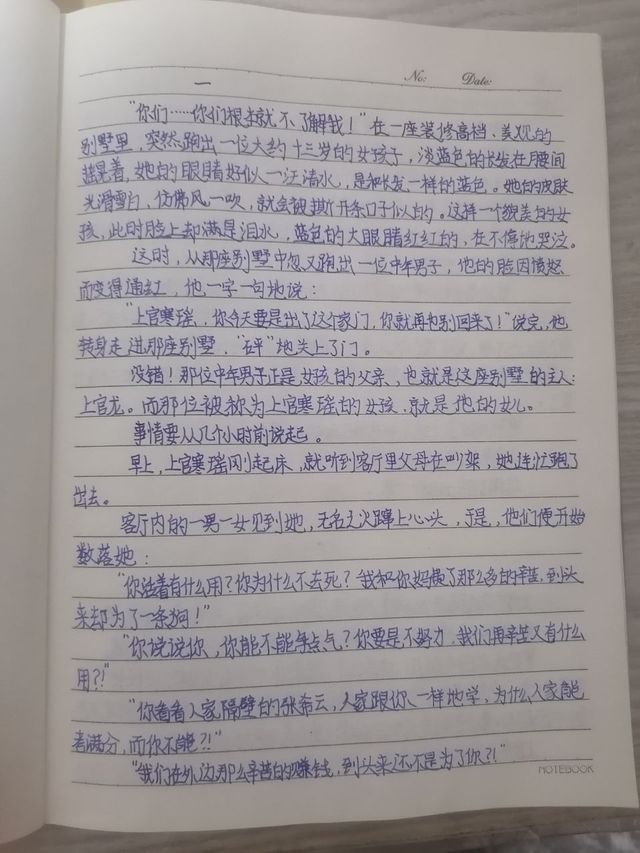 No: Date:
一
“你们……你们根本就不了解我！”在一座装修高档、美观的
别墅里，突然跑出一位大约十三岁的女孩子，淡蓝色的长发在腰间
摇晃着，她的眼睛好似一汪清水，是和长发一样的蓝色。她的皮肤
光滑雪白，仿佛风一吹，就会被撕开条口子似的。这样一个貌美的女
孩，此时脸上却满是泪水，蓝色的大眼睛红红的，在不停地哭泣。
这时，从那座别墅中忽又跑出一位中年男子，他的脸因愤怒
而变得通红，他一字一句地说：
“上官寒瑶，你今天要是出了这个家门，你就再也别回来了！”说完，他
转身走进那座别墅，“砰”地关上了门。
没错！那位中年男子正是女孩的父亲，也就是这座别墅的主人：
上官龙。而那位被称为上官寒瑶的女孩，就是他的女儿。
事情要从几个小时前说起。
早上，上官寒瑶刚起床，就听到客厅里父母在吵架，她连忙跑了
出去。
客厅内的一男一女见到她，无名之火蹿上心头，于是，他们便开始
数落她：
“你活着有什么用？你为什么不去死？我和你妈费了那么多的辛苦，到头
来却为了一条狗！”
“你说说你，你能不能争点气？你要是不努力，我们再辛苦又有什么
用？！”
“你看看人家隔壁的张希云，人家跟你一样地学，为什么人家能
考满分，而你不能？！”
“我们在外边那么辛苦的赚钱，到头来还不是为了你？！”
NOTEBOOK